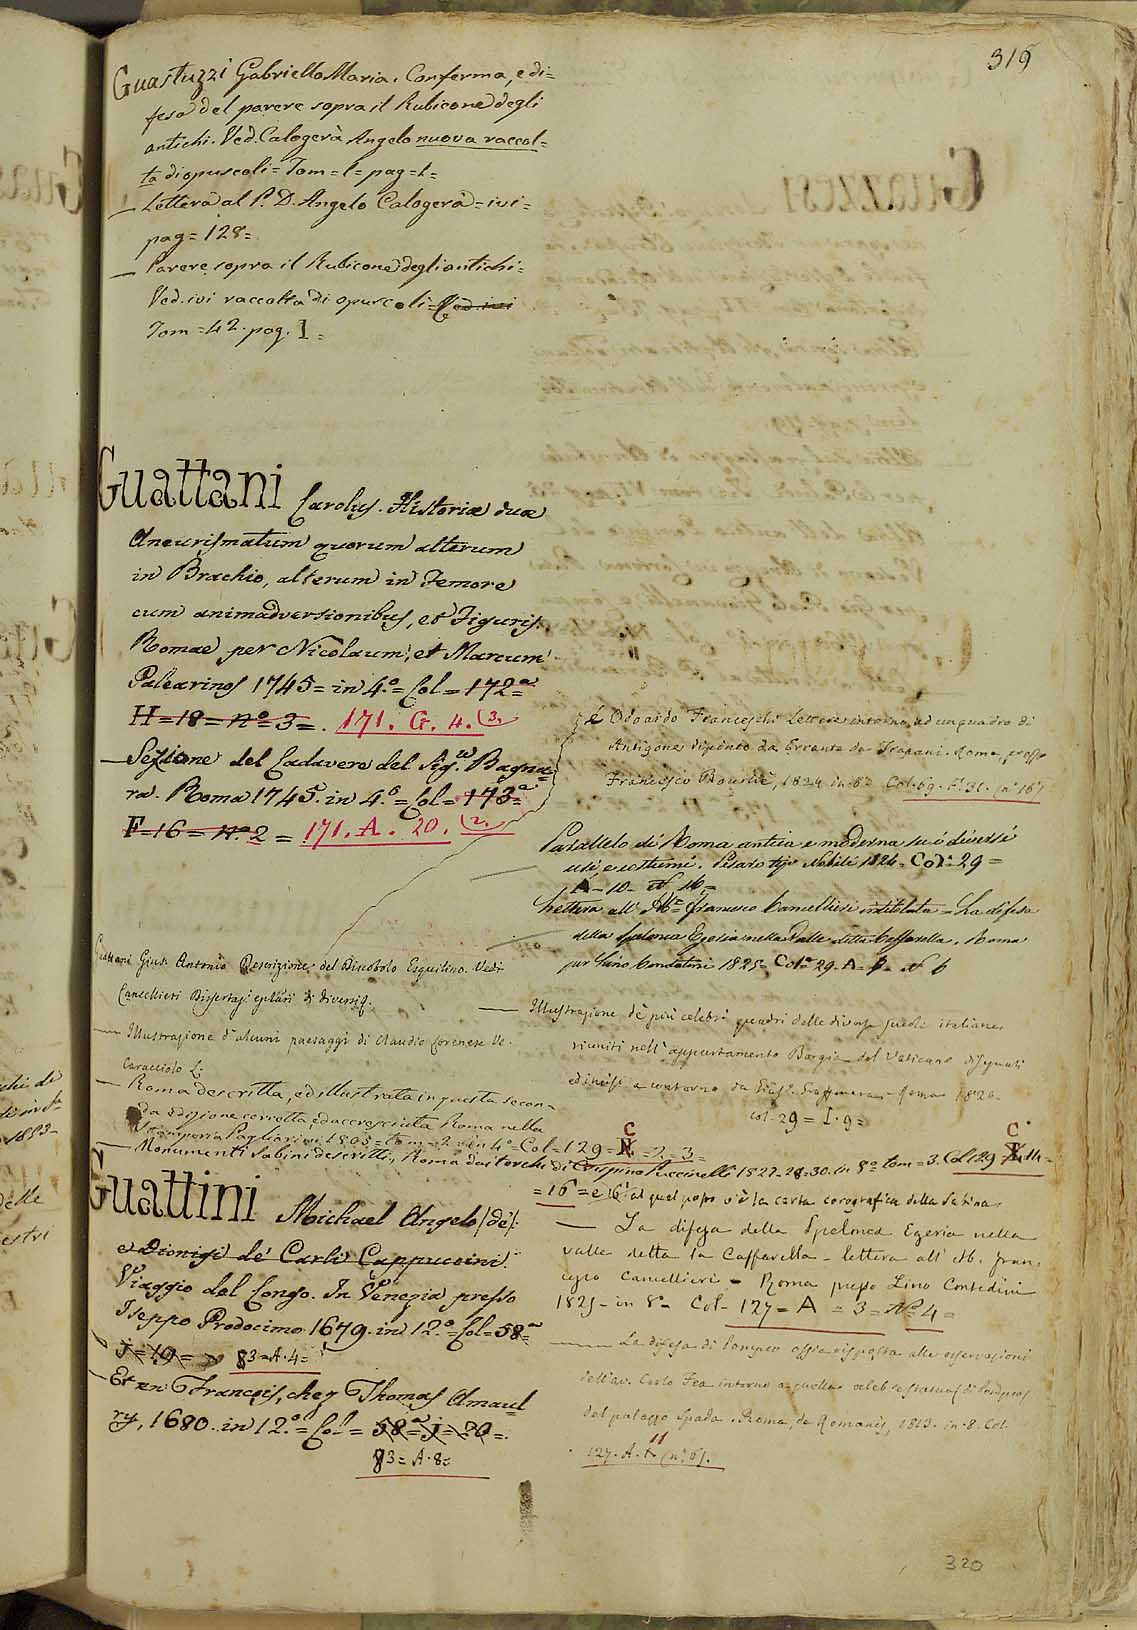 319
Guastuzzi Gabriello Maria. Conferma, e di=
fesa del parere sopra il Rubicone degli
antichi. Ved. Calogerà Angelo nuova raccol=
ta di opuscoli = Tom = 1 = pag = 1 =
— Lettera al P. D. Angelo Calogerà = ivi =
pag = 128 =
— Parere sopra il Rubicone degli antichi =
Ved. ivi raccolta di opuscoli = Ved. ivi
Tom = 42. pag. I =
Guattani Carolus. Historiæ duæ
Aneurismatum quorum alterum
in Brachio, alterum in Femore
cum animadversionibus, et Figuris.
Romae per Nicolaum, et Marcum
Palearinos 1745 = in 4.º = Col = 172ª
H = 18 = nº 3 = . 171. G. 4. (3.
— Sezione del Cadavere del Sig.re Bagna=
ra. Roma 1745. in 4.º = Col = 173ª =
F = 16 = nº 2 = 171. A. 20. (2.
Guattani Gius. Antonio Descrizione del Discobolo Esquilino. Vedi
Cancellieri Dissertazi epistlari di diversi
— Illustrazione d'alcuni paesaggi di Claudio Lorenese Ve.
Caracciolo L.
— Roma descritta, ed illustrata in questa secon=
da edizione corretta, ed accresciuta Roma nella
Stamperia Pagliarini 1805 = tom = 2 = in 4º = Col = 129 = C N = 2 = 3 =
— Monumenti Sabini descritti, Roma dai torchi di Crispino Puccinelli 1827-28-30. in 8º tom = 3. Col 129 C 14 =
= 16 = e 16 al quel passo v'è la carta corografica della Sabina
Guattini Michael Angelo (de')
e Dionigi de' Carli Cappuccini.
Viaggio del Congo. In Venezia presso
Iseppo Prodocimo 1679. in 12.º = Col = 58ª =
j = 19 = 83 = A. 4 =
— Et en François, chez Thomas Amaul
ry, 1680. in 12.º = Col = 58ª = j = 20 = .
83 = A. 8 =
A Odoardo Franceschi Lettere intorno ad un quadro di
Antigone dipinto da Errante da Trapani. Roma, presso
Francesco Bourlié, 1824 in 8º Col. 69.
Parallelo di Roma antica e moderna su i diversi
usi, e costumi. Pesaro tipo Nobili 1826 = Colº 29 =
A - 10 - Nº 16 =
Lettera all' Abte Francesco Cancellieri intitolata = La difesa
della spelonca Egeria nella Valle detta Caffarella. Roma
per Lino Contedini 1825 = Colº 29. A =
— Illustrazione de' più celebri quadri delle diverse scuole italiane
riuniti nell' appartamento Borgia del Vaticano disegnati
ed incisi a contorno da Roma 1820.
Col - 29 = I. 9 =
— La difesa della Spelonca Egeria nella
valle detta la Caffarella - lettera all' Ab. Fran,
cesco Cancellieri - Roma presso Lino Contedini
1825 - in 8º Col - 127 = A = 3 = Nº 4 =
— La difesa di Pompeo ossia risposta alle osservazioni
dell' av. Carlo Fea intorno a quella celebre statua di Pompeo
del palazzo Spada. Roma, de Romanis, 1813. in 8. Col.
127. A. 11 (nº 6).
320